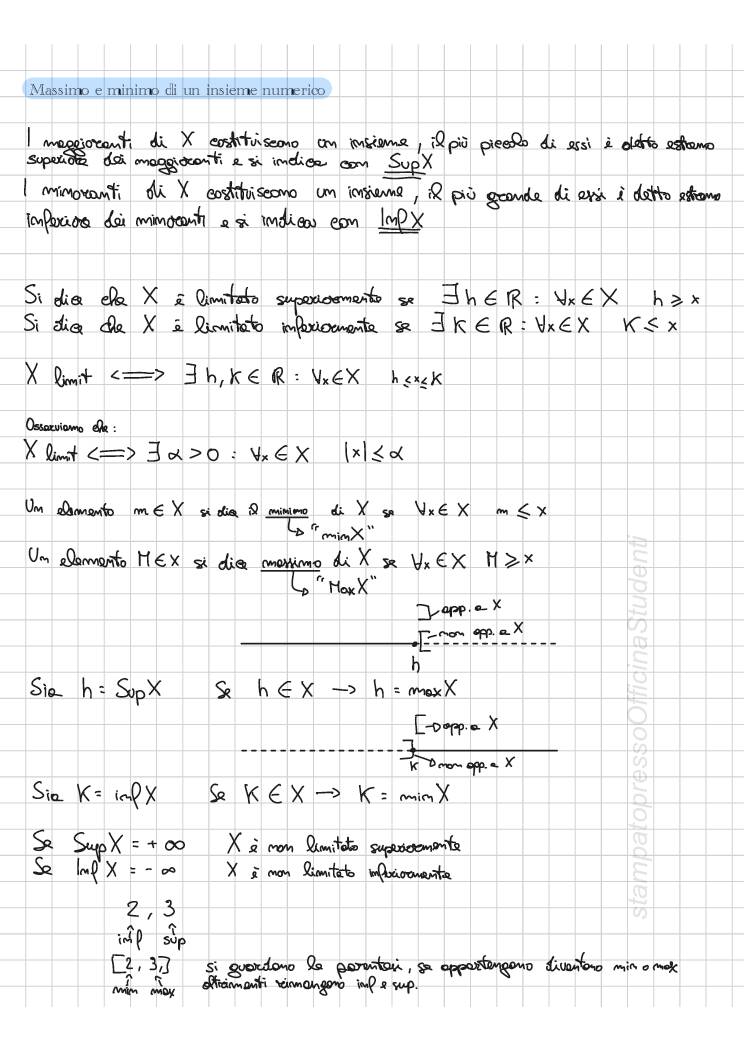 Massimo e minimo di un insieme numerico
I maggioranti di X costituiscono un insieme, il più piccolo di essi è detto estremo
superiore dei maggioranti e si indica con SupX
I minoranti di X costituiscono un insieme, il più grande di essi è detto estremo
inferiore dei minoranti e si indica con InfX
Si dice che X è limitato superiormente se ∃h∈ℝ : ∀x∈X h ≥ x
Si dice che X è limitato inferiormente se ∃K∈ℝ : ∀x∈X K ≤ x
X limit <=> ∃h,K∈ℝ : ∀x∈X h≤x≤K
Osserviamo che:
X limit <=> ∃α>0 : ∀x∈X |x|≤α
Un elemento m∈X si dice il minimo di X se ∀x∈X m ≤ x
↳ "minX"
Un elemento M∈X si dice massimo di X se ∀x∈X M≥x
↳ "MaxX"
] app. a X
[ non app. a X
h
Sia h = SupX Se h∈X → h = maxX
[ → app. a X
]
K → non app. a X
Sia K = infX Se K∈X → K = minX
Se SupX = +∞ X è non limitato superiormente
Se InfX = -∞ X è non limitato inferiormente
2 , 3
inf sup
[2, 3] si guardano le parentesi, se appartengono diventano min o max
min max altrimenti rimangono inf e sup.
stampatopressoOfficinaStudenti